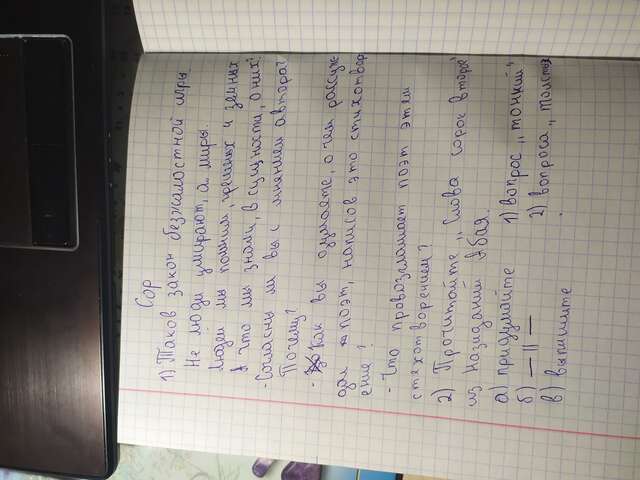 Сор
1) Таков закон безжалостной игры
Не люди умирают, а миры.
Людей мы помним, грешных и земных
А что мы знали, в сущности, о них?
- Согласны ли вы с мнением автора?
Почему?
- Как вы думаете, о чем рассуж
дал поэт, написав это стихотвор
ение?
- Что провозглашает поэт этим
стихотворением?
2) Прочитайте „Слова сорок второе"
из Назиданий Абая.
а) придумайте 1) вопрос „тонкий"
б) —||— 2) вопроса „толстых
в) выпишите